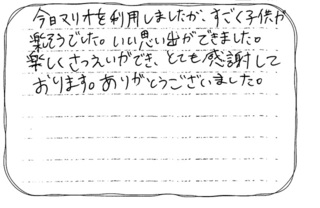 今日マリオを利用しましたが、すごく子供が
楽そうでした。いい思い出ができました。
楽しくさつえいができ、とても感謝して
おります。ありがとうございました。